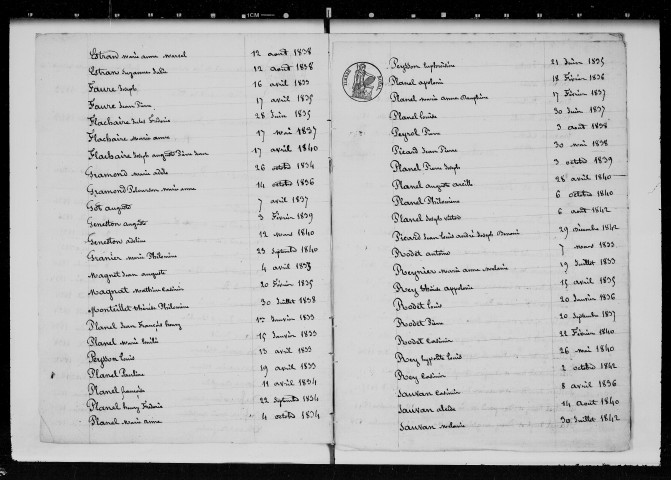 Estran marie anne marcel 12 aout 1838
Estran Suzanne Julie 12 aout 1838
Faure Joseph 16 avril 1833
Faure Jean Pierre 17 avril 1835
Flachaire Jules Frédéric 28 Juin 1835
Flachaire Marie anne 17 mai 1837
Flachaire Joseph auguste Pierre Jean 17 avril 1840
Gramond marie adèle 26 octobre 1834
Gramond Pelourson marie anne 14 octobre 1836
Got auguste 7 avril 1837
Genestton auguste 3 Février 1839
Genestton 12 mars 1840
Granier marie Philomène 23 Septembre 1840
Magnat Jean auguste 4 avril 1833
Magnat Matthieu Casimir 20 Février 1835
Monteillet Thérèse Philomène 30 Juillet 1838
Planel Jean François henry Janvier 1833
Planel Marie Emilie 15 Janvier 1833
Peysson Louis 13 avril 1833
Planel Pauline 19 avril 1833
Planel françois 11 avril 1834
Planel henry Frédéric 22 Septembre 1834
Planel Marie anne 4 octobre 1834
Peysson 21 Juin 1835
Planel apolonie 18 Février 1836
Planel marie anne Dauphine 17 Février 1837
Planel Louise 30 Juin 1837
Peyrol Pierre 3 aout 1838
Picard Jean Pierre 30 mai 1838
Planel Pierre Joseph 3 octobre 1839
Planel auguste 28 avril 1840
Planel Philomène 6 octobre 1840
Planel Joseph Victor 6 aout 1842
Picard Jean Louis andré Joseph 29 décembre 1842
Rodet antoine 7 mars 1833
Reynier Marie anne melanie 19 Juillet 1833
Rey Thérèse appolonie 15 avril 1835
Rodet Louis 20 Janvier 1836
Rodet Pierre 20 Septembre 1837
Rodet Casimir 22 Février 1840
Rey hyppolite Louis 26 mai 1840
Rey Casimir 2 octobre 1842
Sauvan Casimir 8 avril 1836
Sauvan alcide 14 Août 1840
Sauvan melanie 30 Juillet 1842